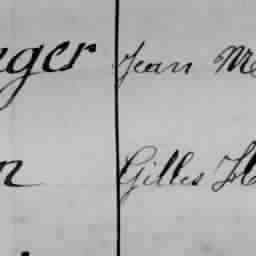 ager Jean Me
n Gilles H